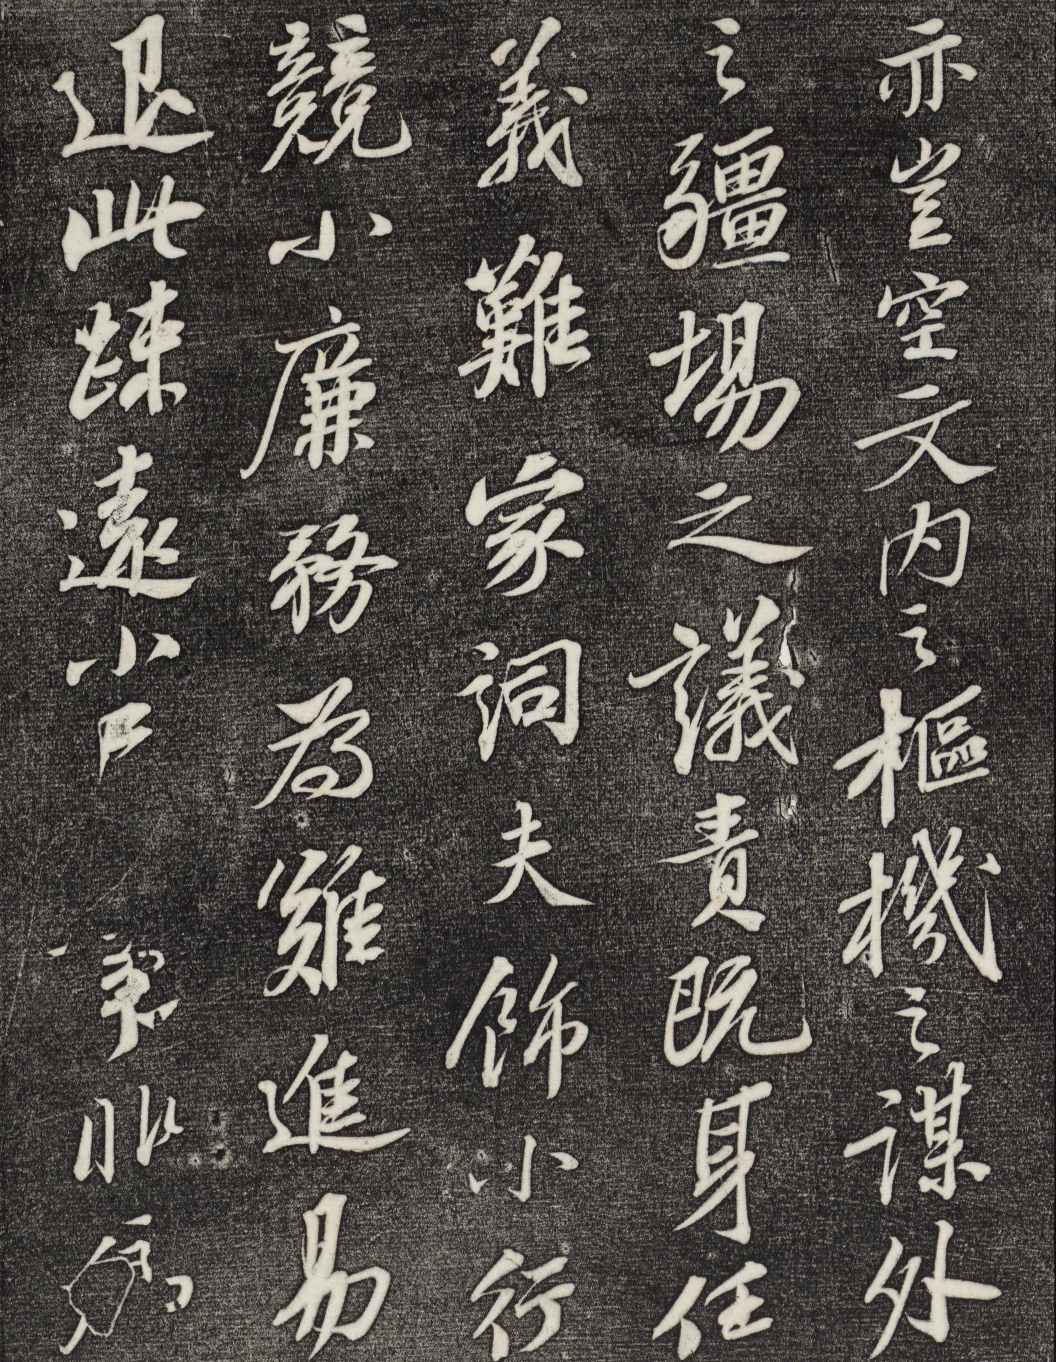 亦豈空文内之樞機之謀外
之疆場之議責既身任
義難家詞夫飾小行
競小廉務為難進易
退此疎遠小